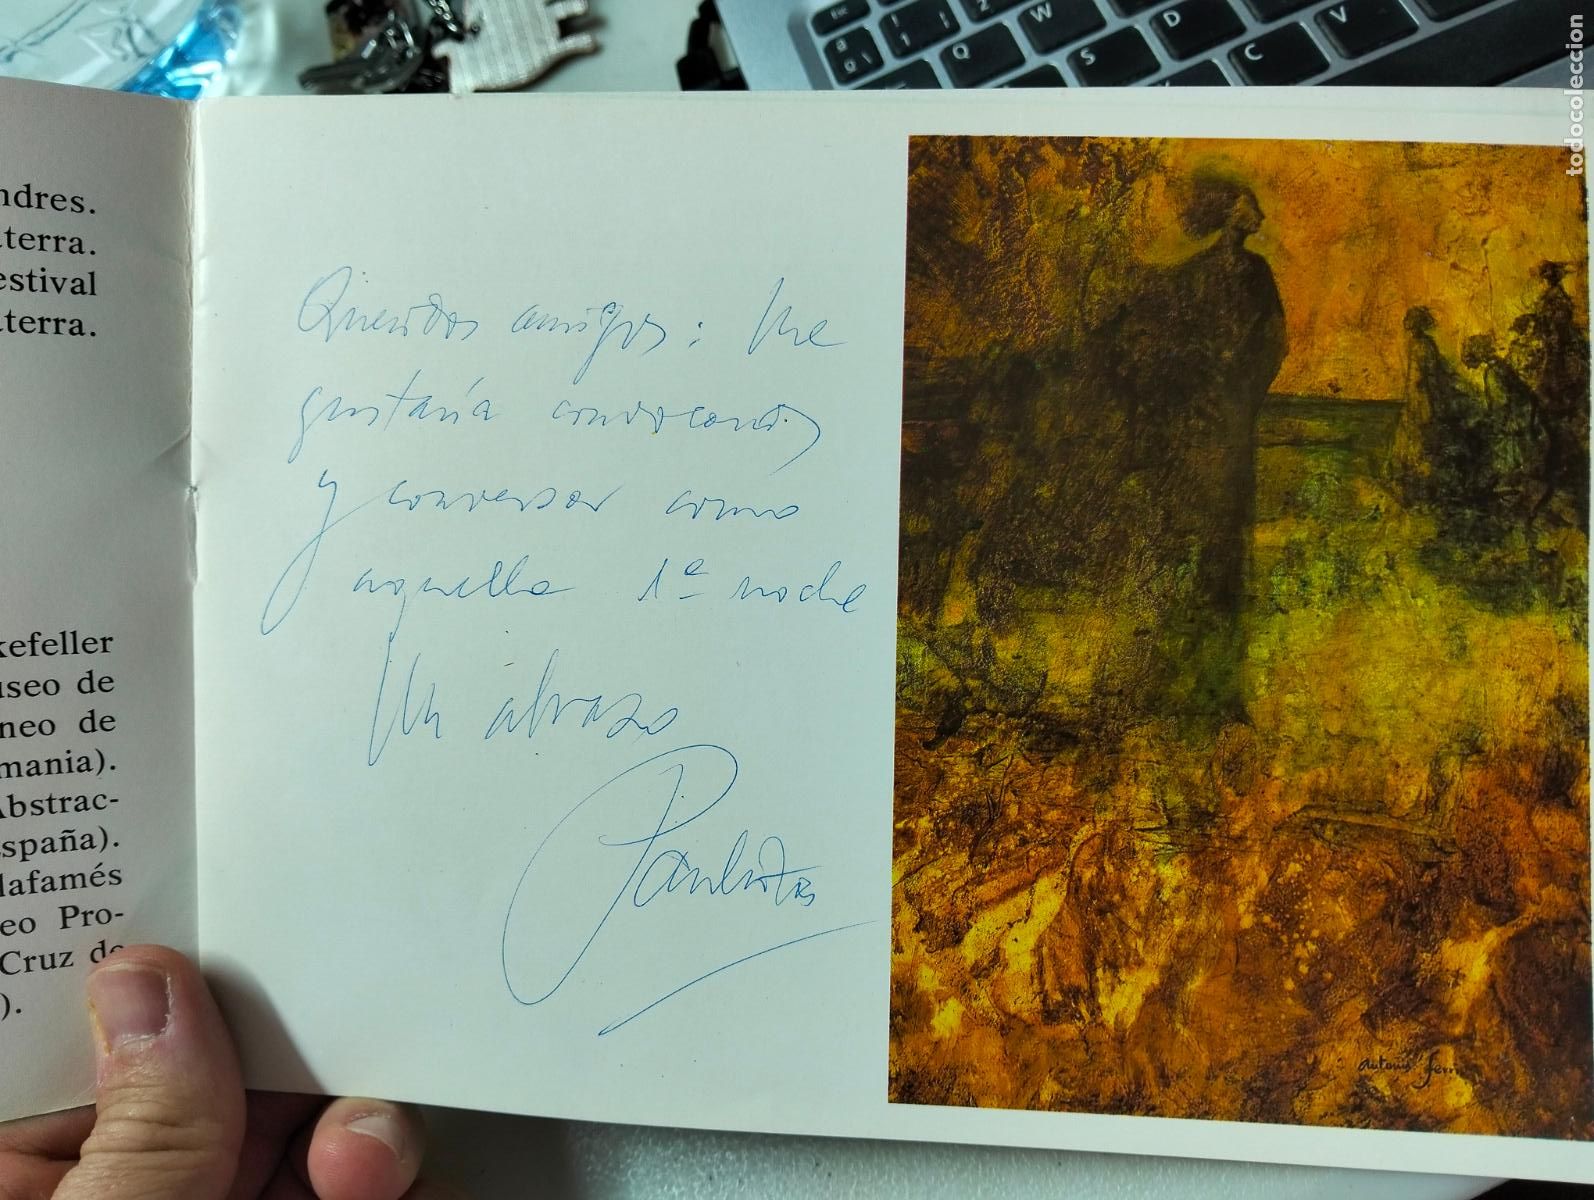 ndres.
terra.
estival
terra.
kefeller
useo de
neo de
mania).
Abstrac-
spaña).
lafamés
eo Pro-
Cruz de
).
Queridos amigos: Me
gustaría
y conversar como
aquella 1ª noche
Un abrazo
antonio
todocoleccion
esc
a
1
2
Q
W
S
D
C
V